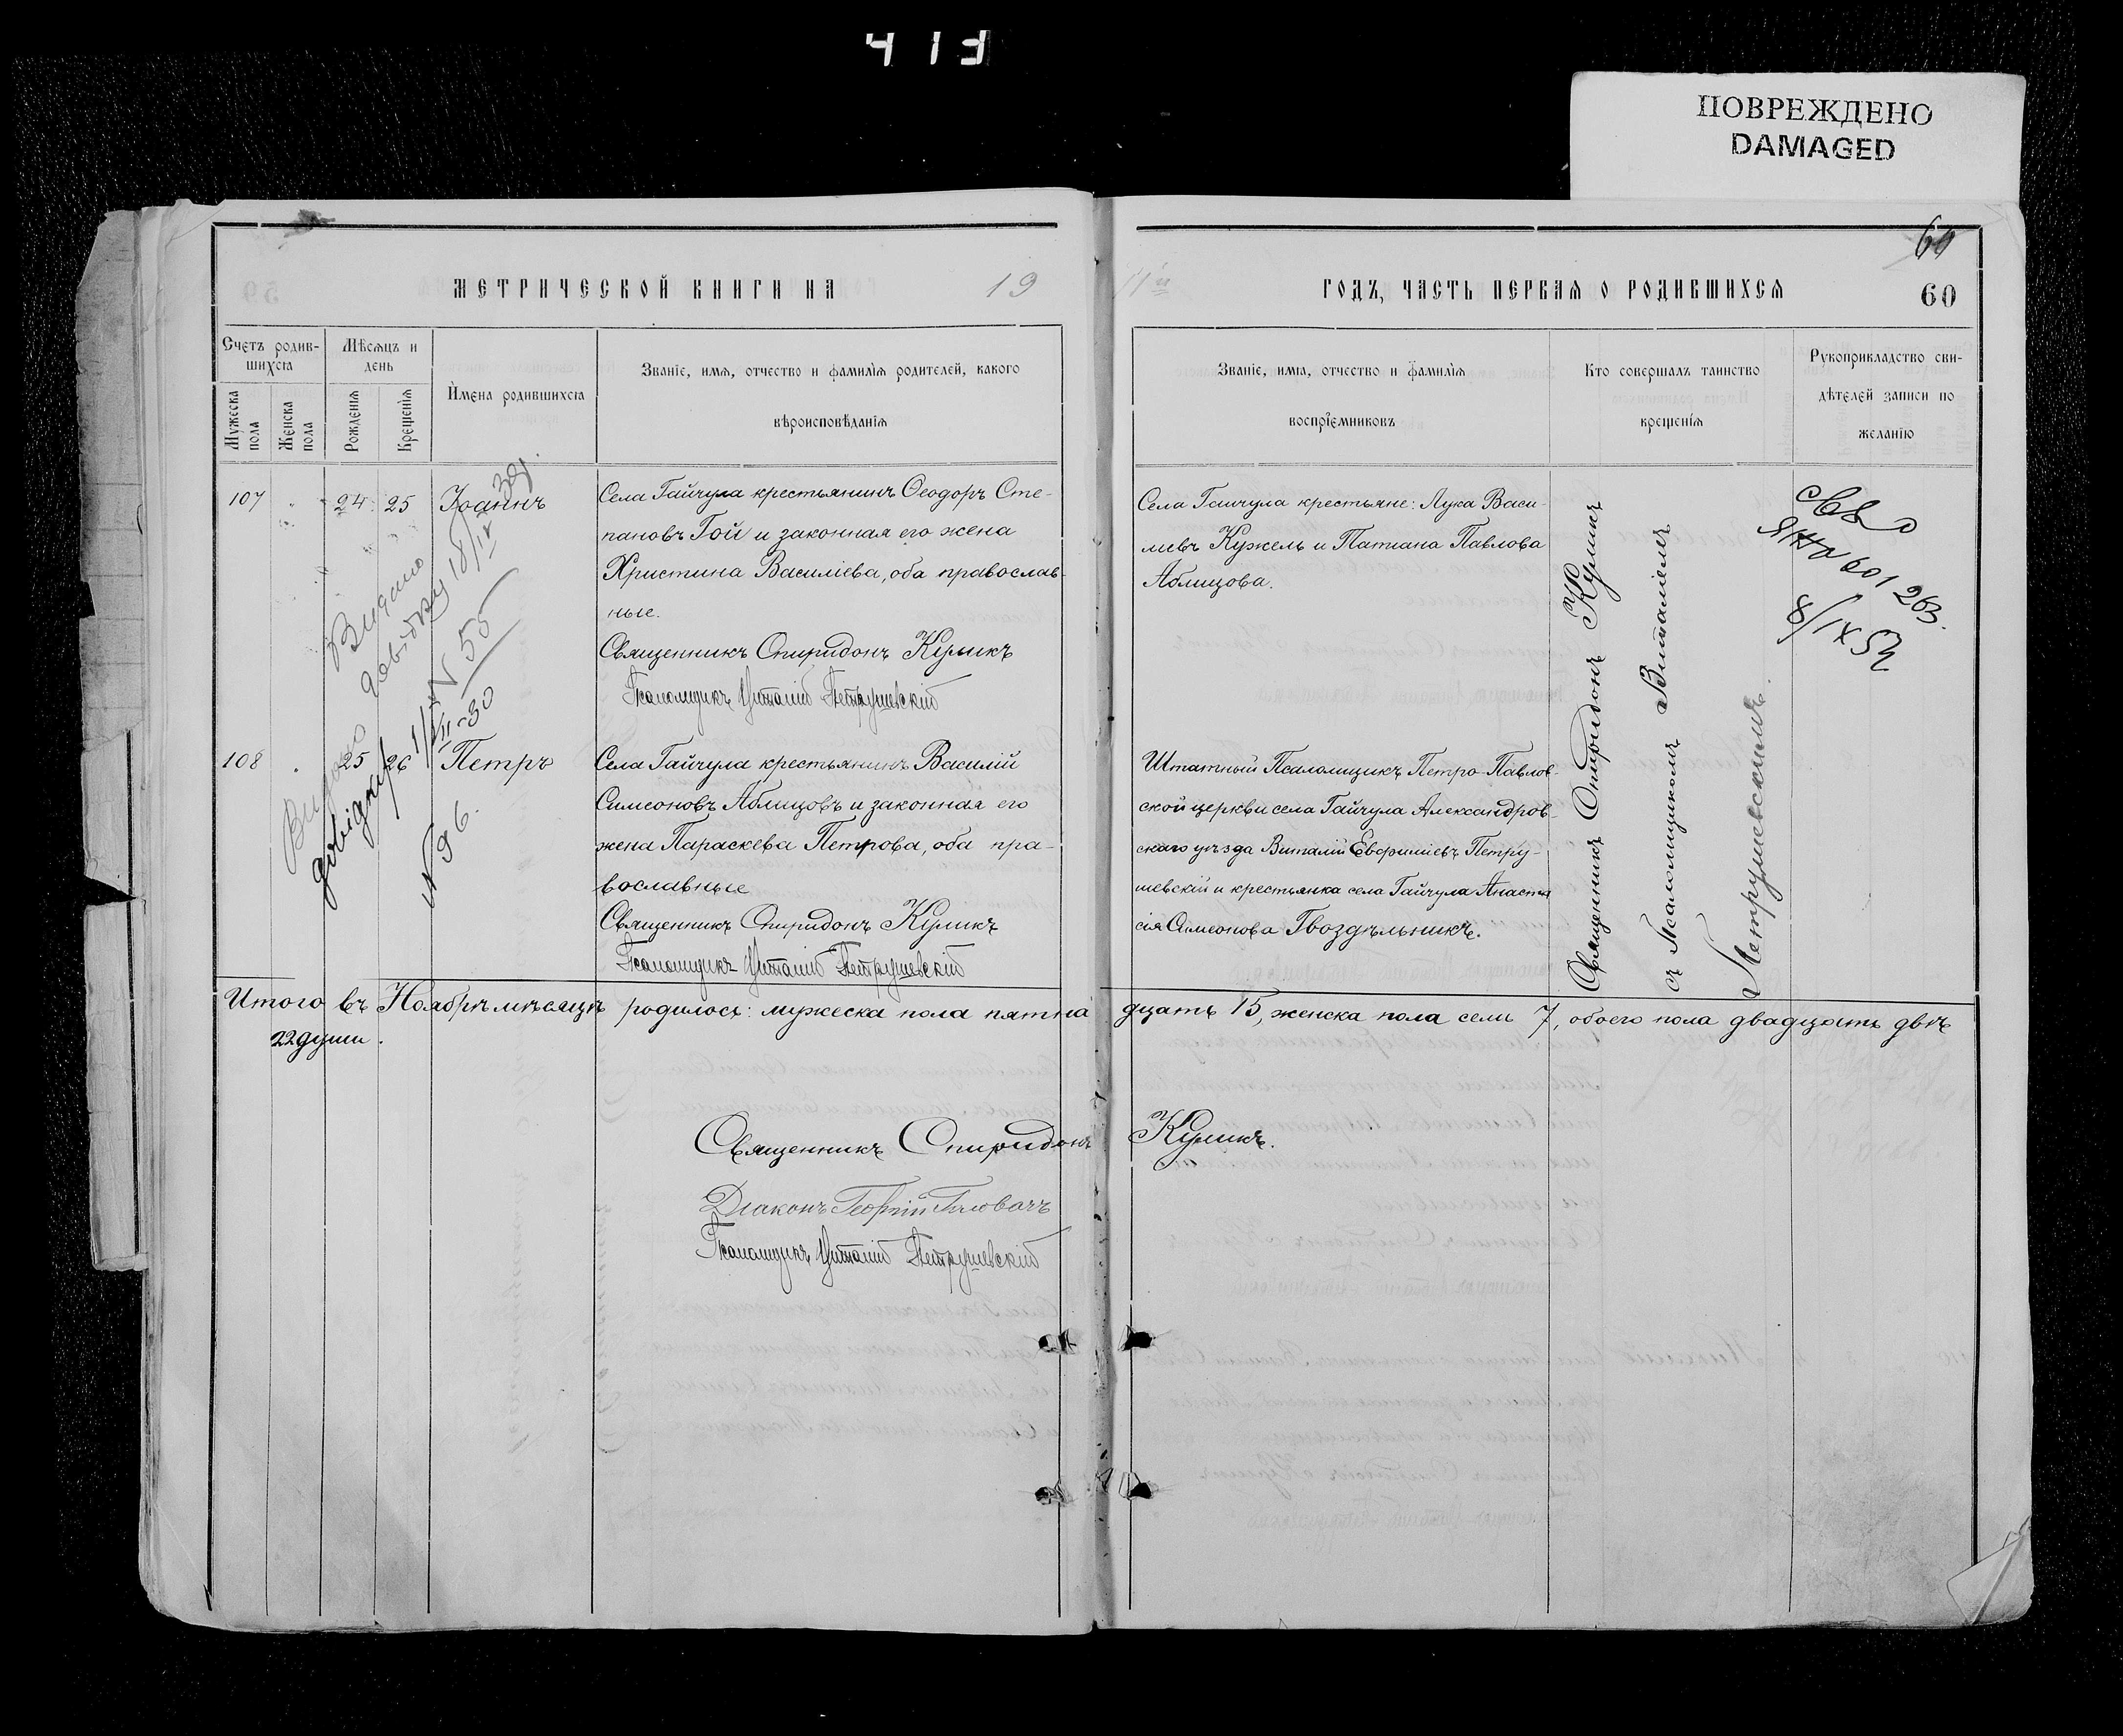 413
ПОВРЕЖДЕНО
DAMAGED
МЕТРИЧЕСКОЙ КНИГИ НА 19
11го ГОДЪ, ЧАСТЬ ПЕРВАЯ О РОДИВШИХСЯ
60
60
Счетъ родив-
шихся
Мужеска пола
Женска пола
Мѣсяцъ и
день
Рожденія
Крещенія
Имена родившихся
Званіе, имя, отчество и фамилія родителей, какого
вѣроисповѣданія
Званіе, имя, отчество и фамилія
воспріемниковъ
Кто совершалъ таинство
крещенія
Рукоприкладство сви-
дѣтелей записи по
желанію
107 " 24 25 Іоаннъ
Села Гайчула крестьянинъ Ѳеодоръ Сте-
пановъ Гой и законная его жена
Христина Василіева, оба православ-
ные.
Священникъ Спиридонъ Куликъ
Псаломщикъ Виталій Петрушевскій
Села Гайчула крестьяне: Лука Васи-
лiевъ Кужель и Татiана Павлова
Аблицова.
Священникъ Спиридонъ Куликъ
съ Псаломщикомъ Виталіемъ
Петрушевскимъ.
ЯНО 601263.
8/IX 52
Видано
довідку 18/IV
N 55
108 " 25 26 Петръ
Видано
довідку 1/VII-30
N 96.
Села Гайчула крестьянинъ Василій
Симеоновъ Аблицовъ и законная его
жена Параскева Петрова, оба пра-
вославные
Священникъ Спиридонъ Куликъ
Псаломщикъ Виталій Петрушевскій
Штатный Псаломщикъ Петро-Павлов-
ской церкви села Гайчула Александров-
скаго уѣзда Виталій Евфиміевъ Петру-
шевскій и крестьянка села Гайчула Анаста
сія Симеонова Гвоздѣльникъ.
Итого въ Ноябрѣ мѣсяцѣ родилось: мужеска пола пятнадцать 15, женска пола семь 7, обоего пола двадцать двѣ
22 души.
Священникъ Спиридонъ Куликъ.
Діаконъ Георгій
Псаломщикъ Виталій Петрушевскій